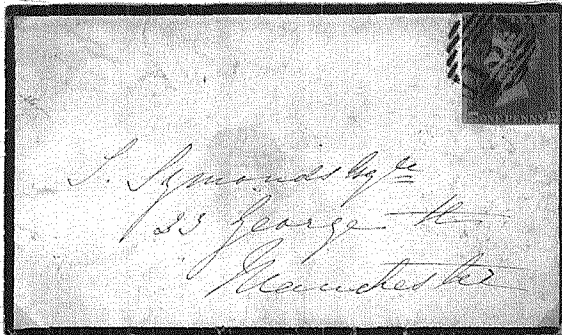 ONE PENNY
S. Symonds Esqre
23 George St
Manchester